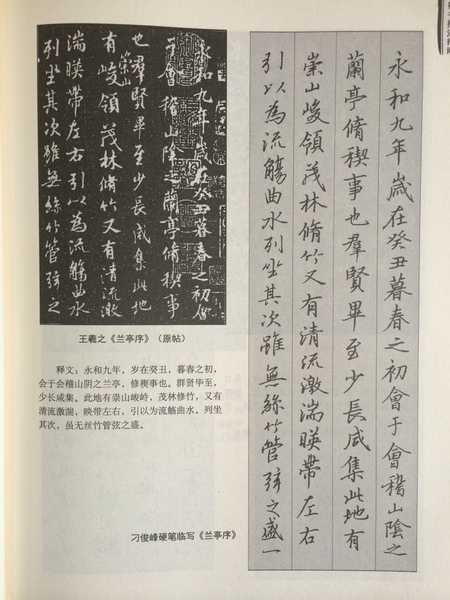 永和九年歲在癸丑暮春之初會于會稽山陰之
蘭亭脩稧事也羣賢畢至少長咸集此地有
崇山峻領茂林脩竹又有清流激湍暎帶左右
引以為流觴曲水列坐其次雖無絲竹管弦之盛一
永和九年歲在癸丑暮春之初會
于會稽山陰之蘭亭脩稧事
也羣賢畢至少長咸集此地
有崇山峻領茂林脩竹又有清流激
湍暎帶左右引以為流觴曲水
列坐其次雖無絲竹管弦之
王羲之《兰亭序》（原帖）
释文：永和九年，岁在癸丑，暮春之初，
会于会稽山阴之兰亭，修稧事也。群贤毕至，
少长咸集。此地有崇山峻岭，茂林修竹，又有
清流激湍，映带左右，引以为流觞曲水，列坐
其次，虽无丝竹管弦之盛。
刁俊峰硬笔临写《兰亭序》